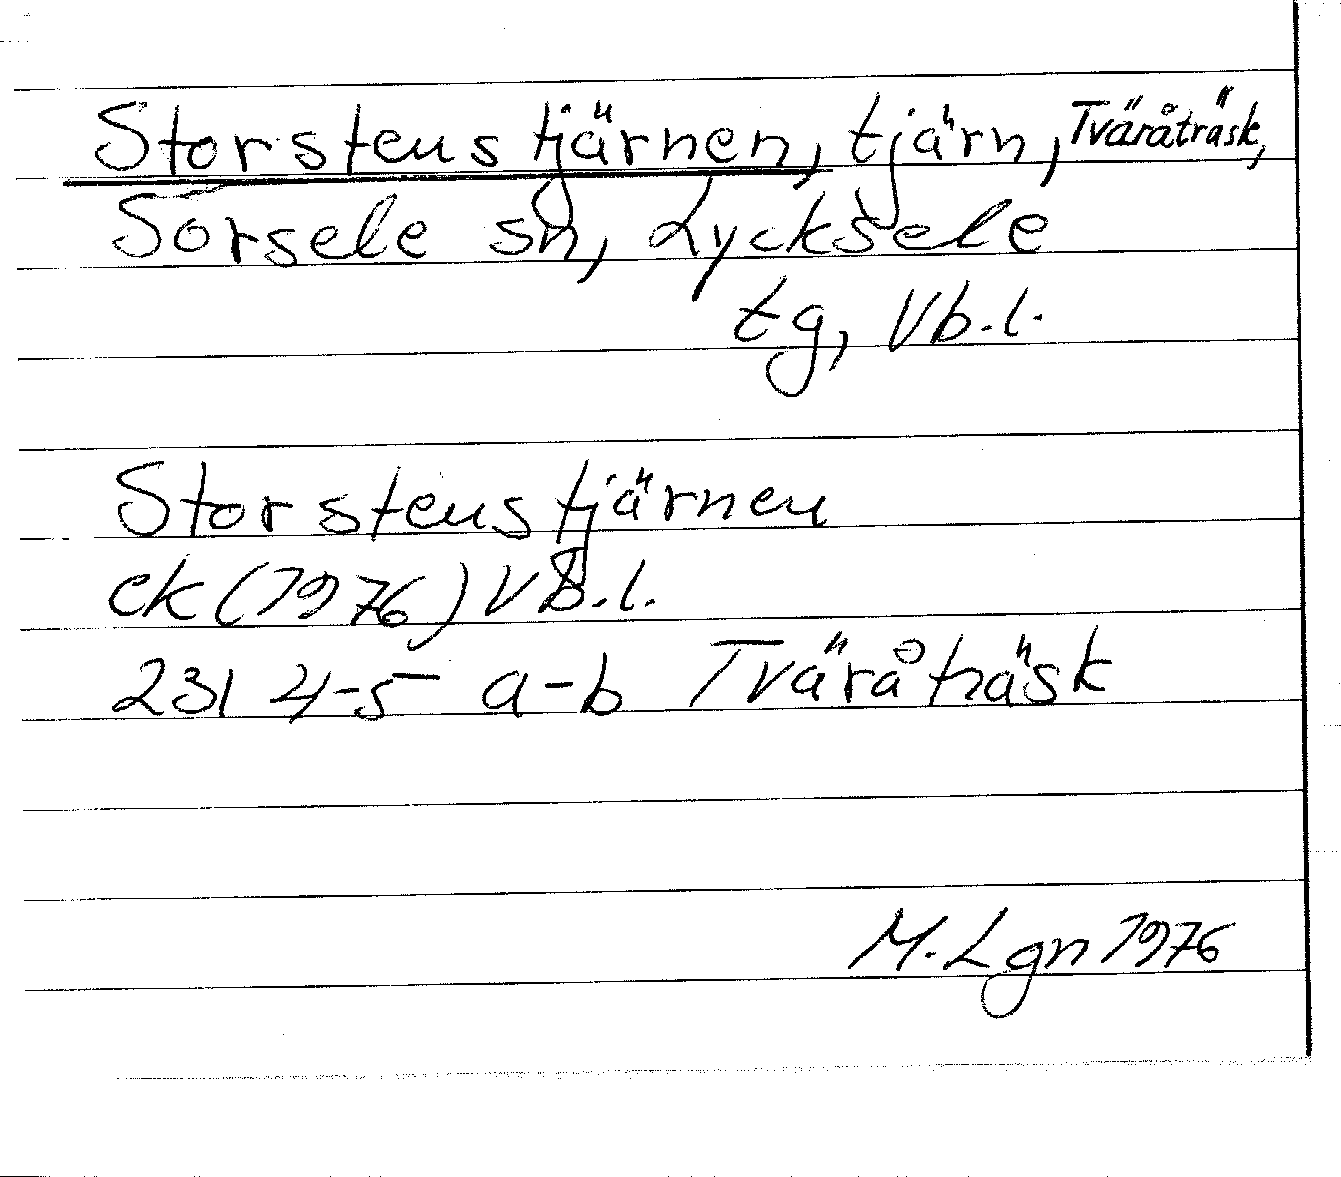 Storstenstjärnen, tjärn, Tväråträsk,
Sorsele sn, Lycksele
tg, Vb.l.
Storstenstjärnen
ek (1976) Vb.l.
231 4-5 a-b Tväråträsk
M. Lgn 1976